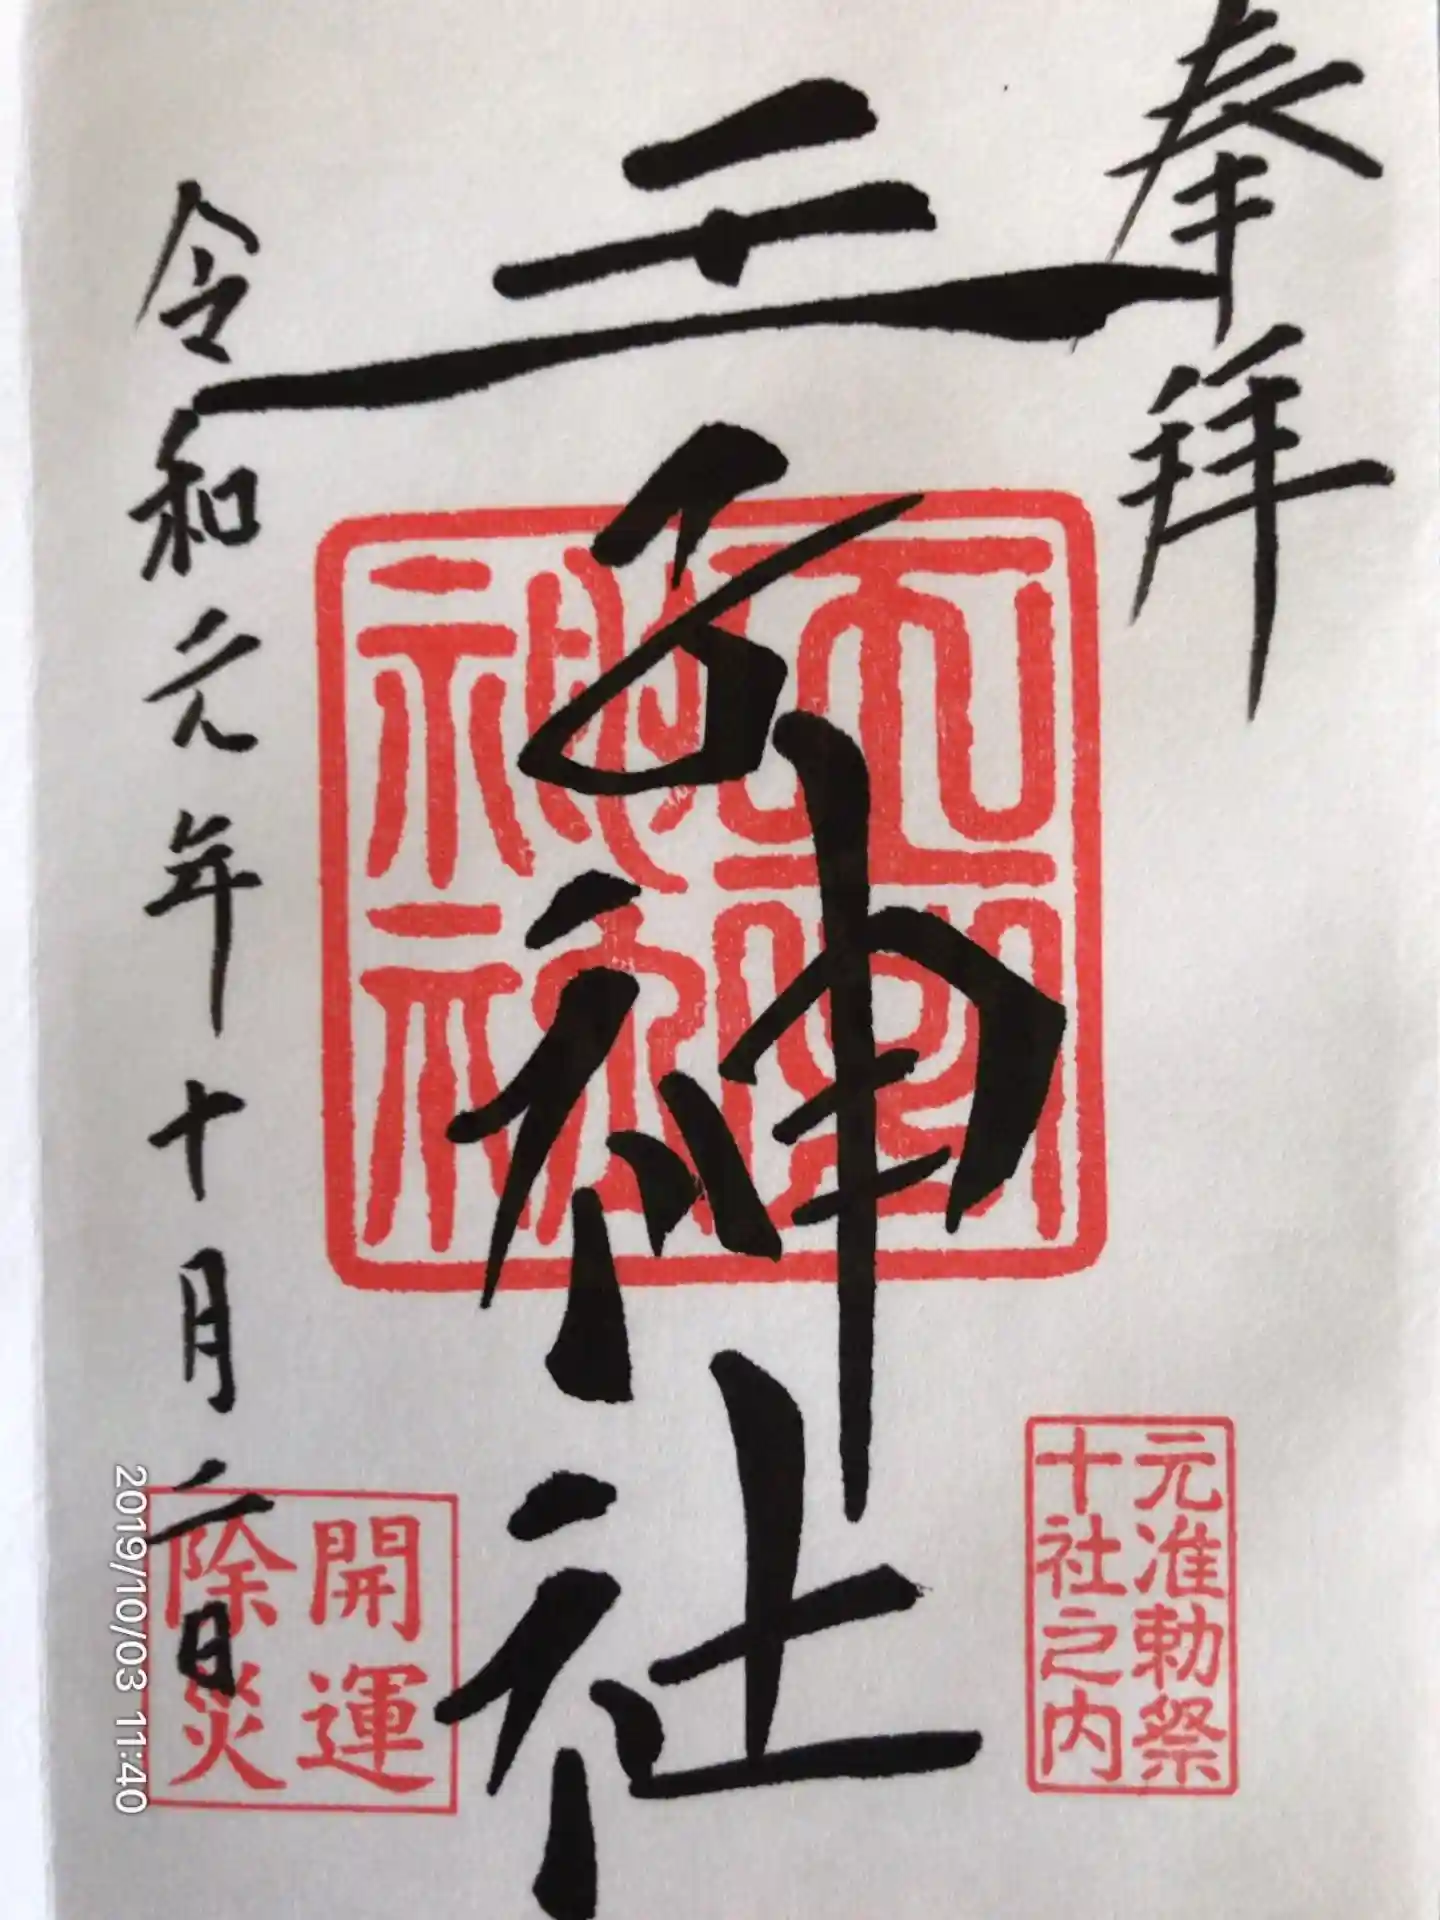 奉拝
元准勅祭
十社之内
王子神社
開運
除災
令和元年十月二日
2019/10/03 11:40